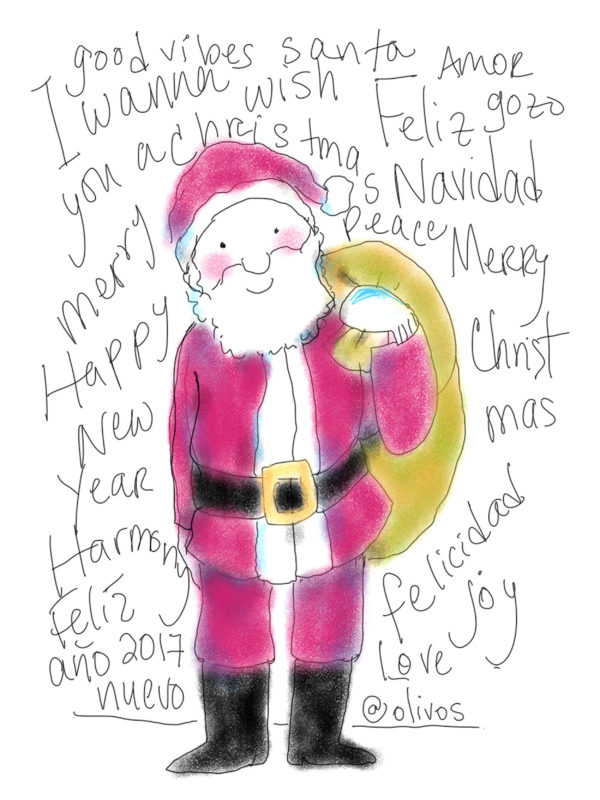 good vibes santa
I wanna wish
you a christmas
merry
Happy
New
Year
Harmony
Feliz
año 2017
nuevo
AMOR
Feliz gozo
Navidad
peace
Merry
Christ
mas
felicidad
joy
Love
@olivos